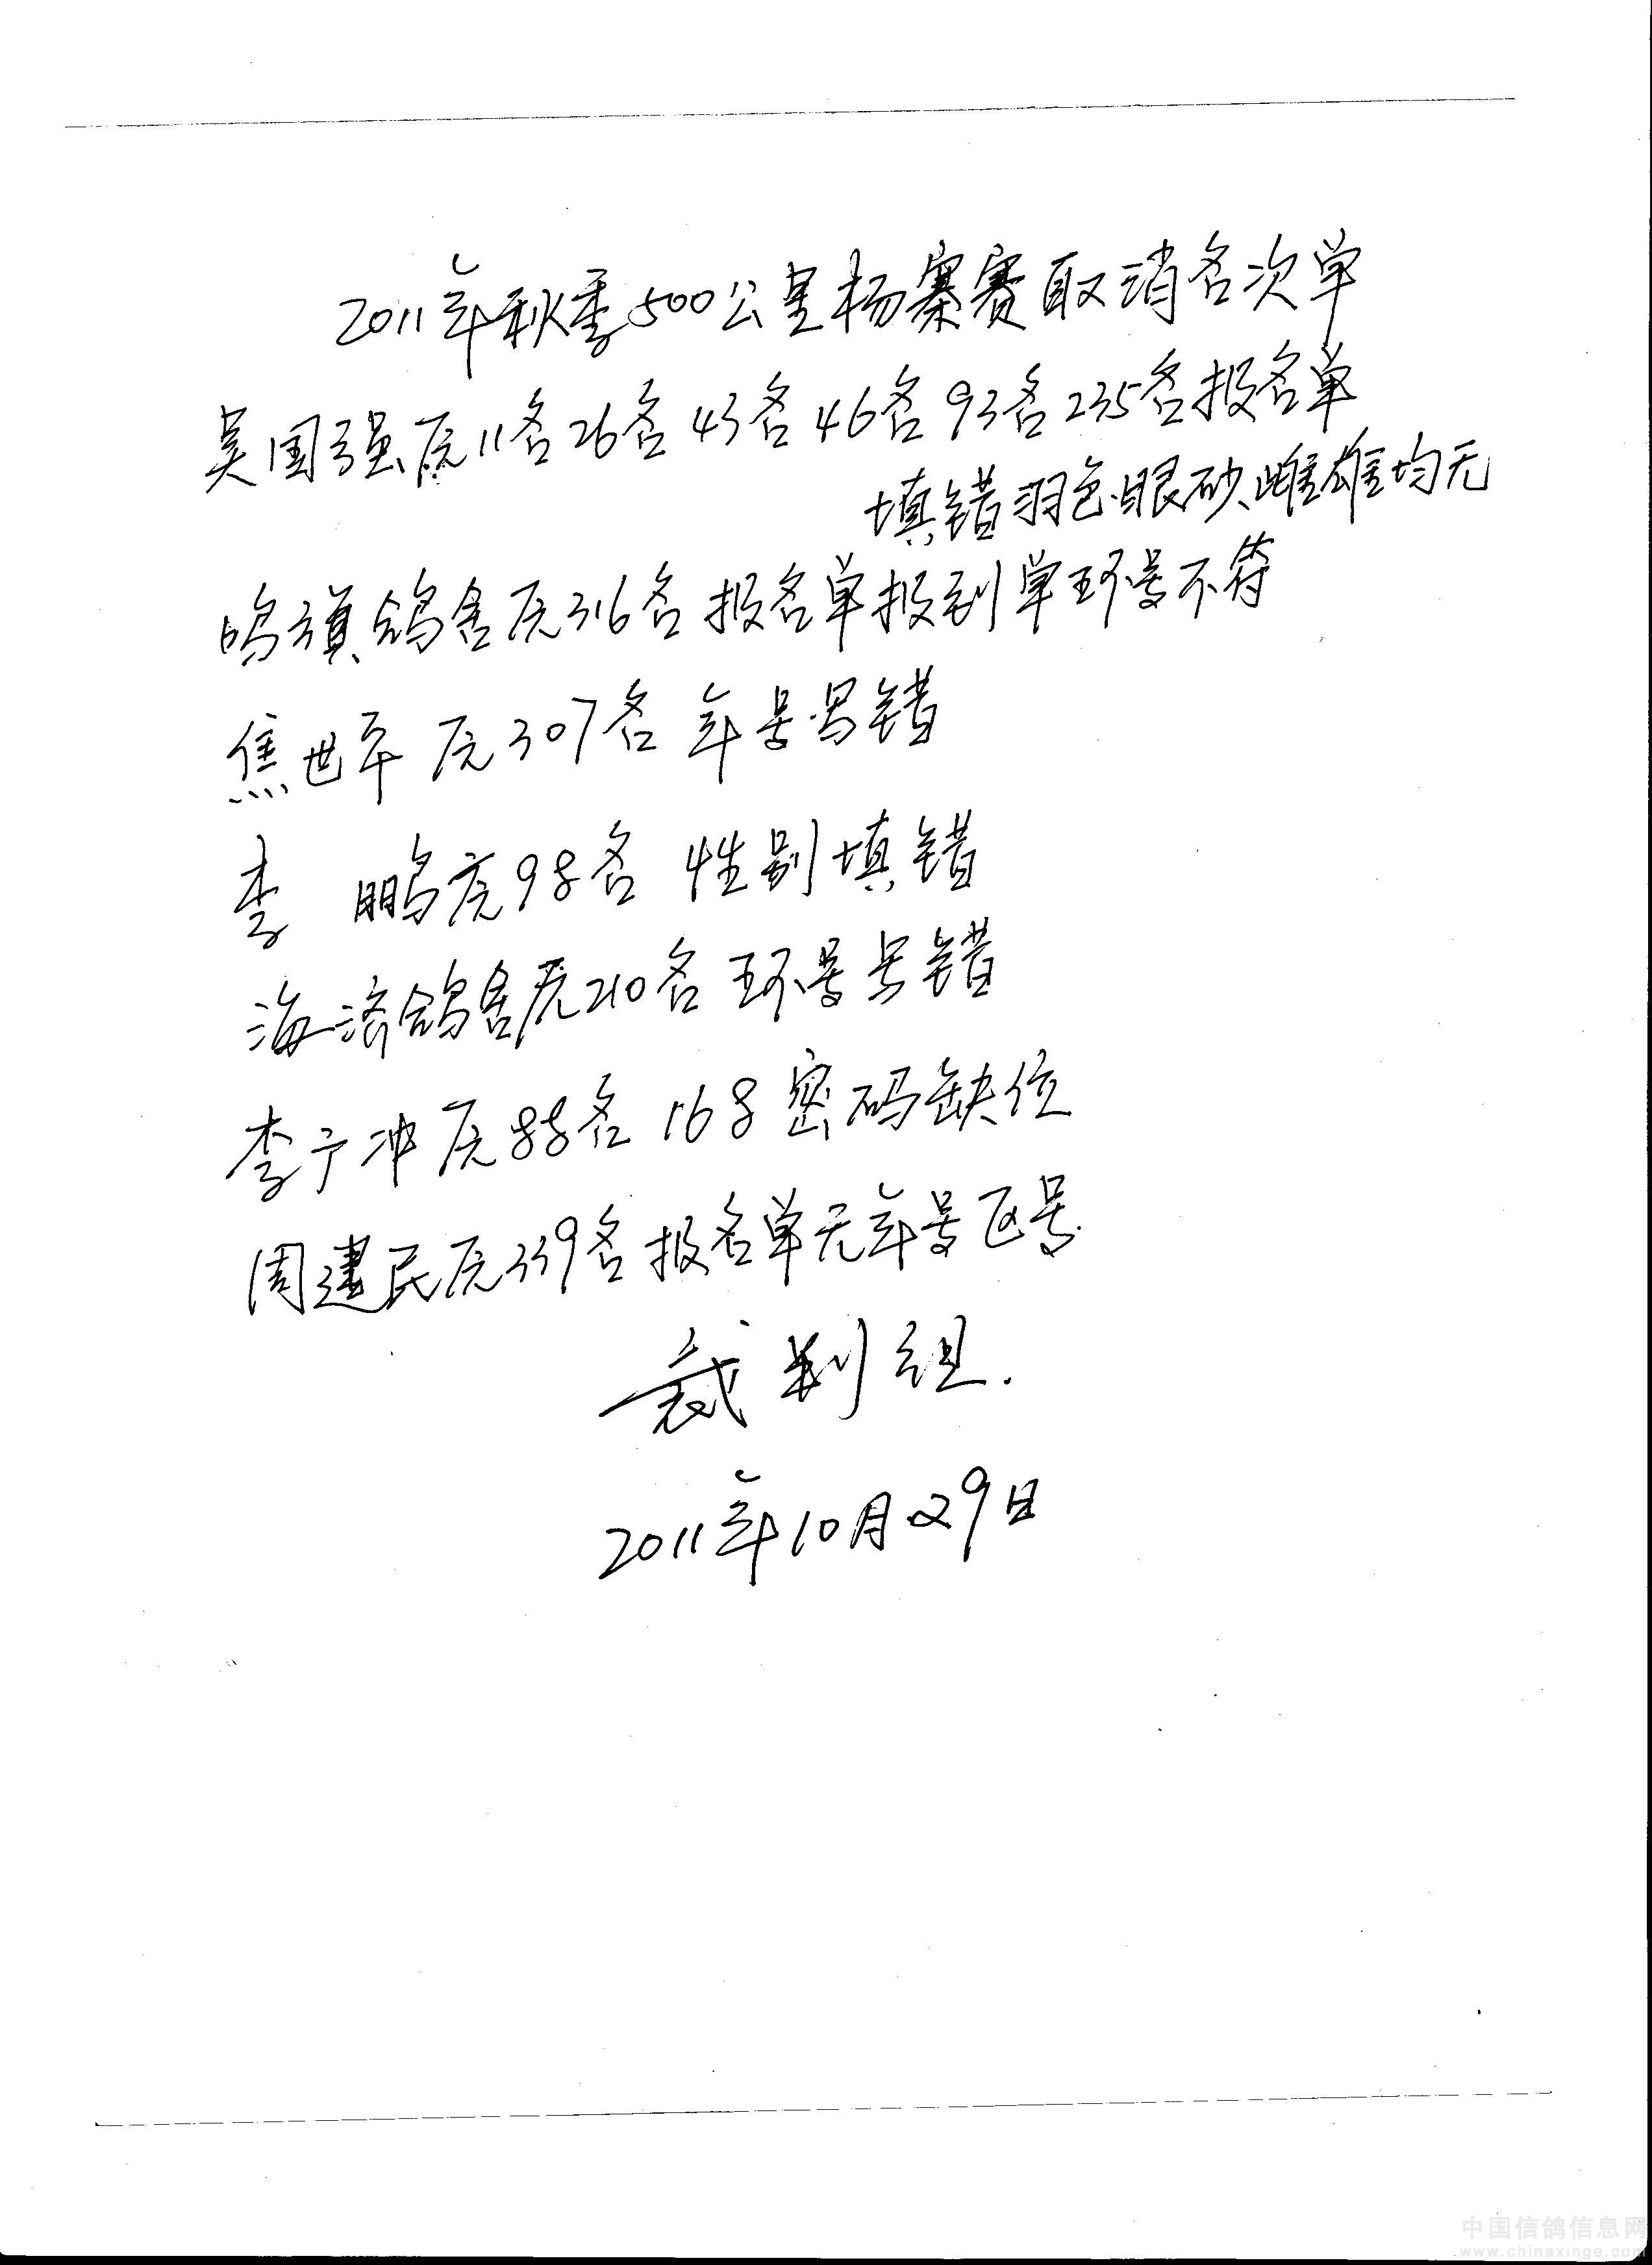 2011年秋季500公里杨寨赛取消名次单
吴国强原11名26名43名46名93名235名报名单
填错羽色、眼砂、雌雄均无
鸣旗鸽舍原316名报名单报到单环号不符
焦世平原307名 年号写错
李 鹏原98名 性别填错
海济鸽舍原210名环号写错
李广冲原88名168密码缺位
周建民原339名报名单无年号区号
裁判组.
2011年10月29日
中国信鸽信息网
www.chinaxinge.com